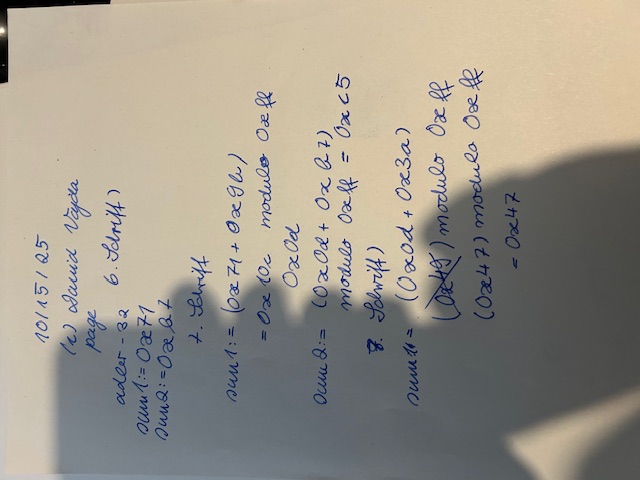 10/15/25
(c) David Vajda
page 6. Schritt)
adler-32
sum1:=0x71
sum2:=0xb7
7. Schritt
sum1:= (0x71 + 0x9b)
= 0x10c modulo 0xff
0x0d
sum2:= (0x0d + 0xb7)
modulo 0xff = 0xc5
8. Schritt)
sum1:= (0x0d + 0x3a)
(0x49) modulo 0xff
(0x47) modulo 0xff
= 0x47